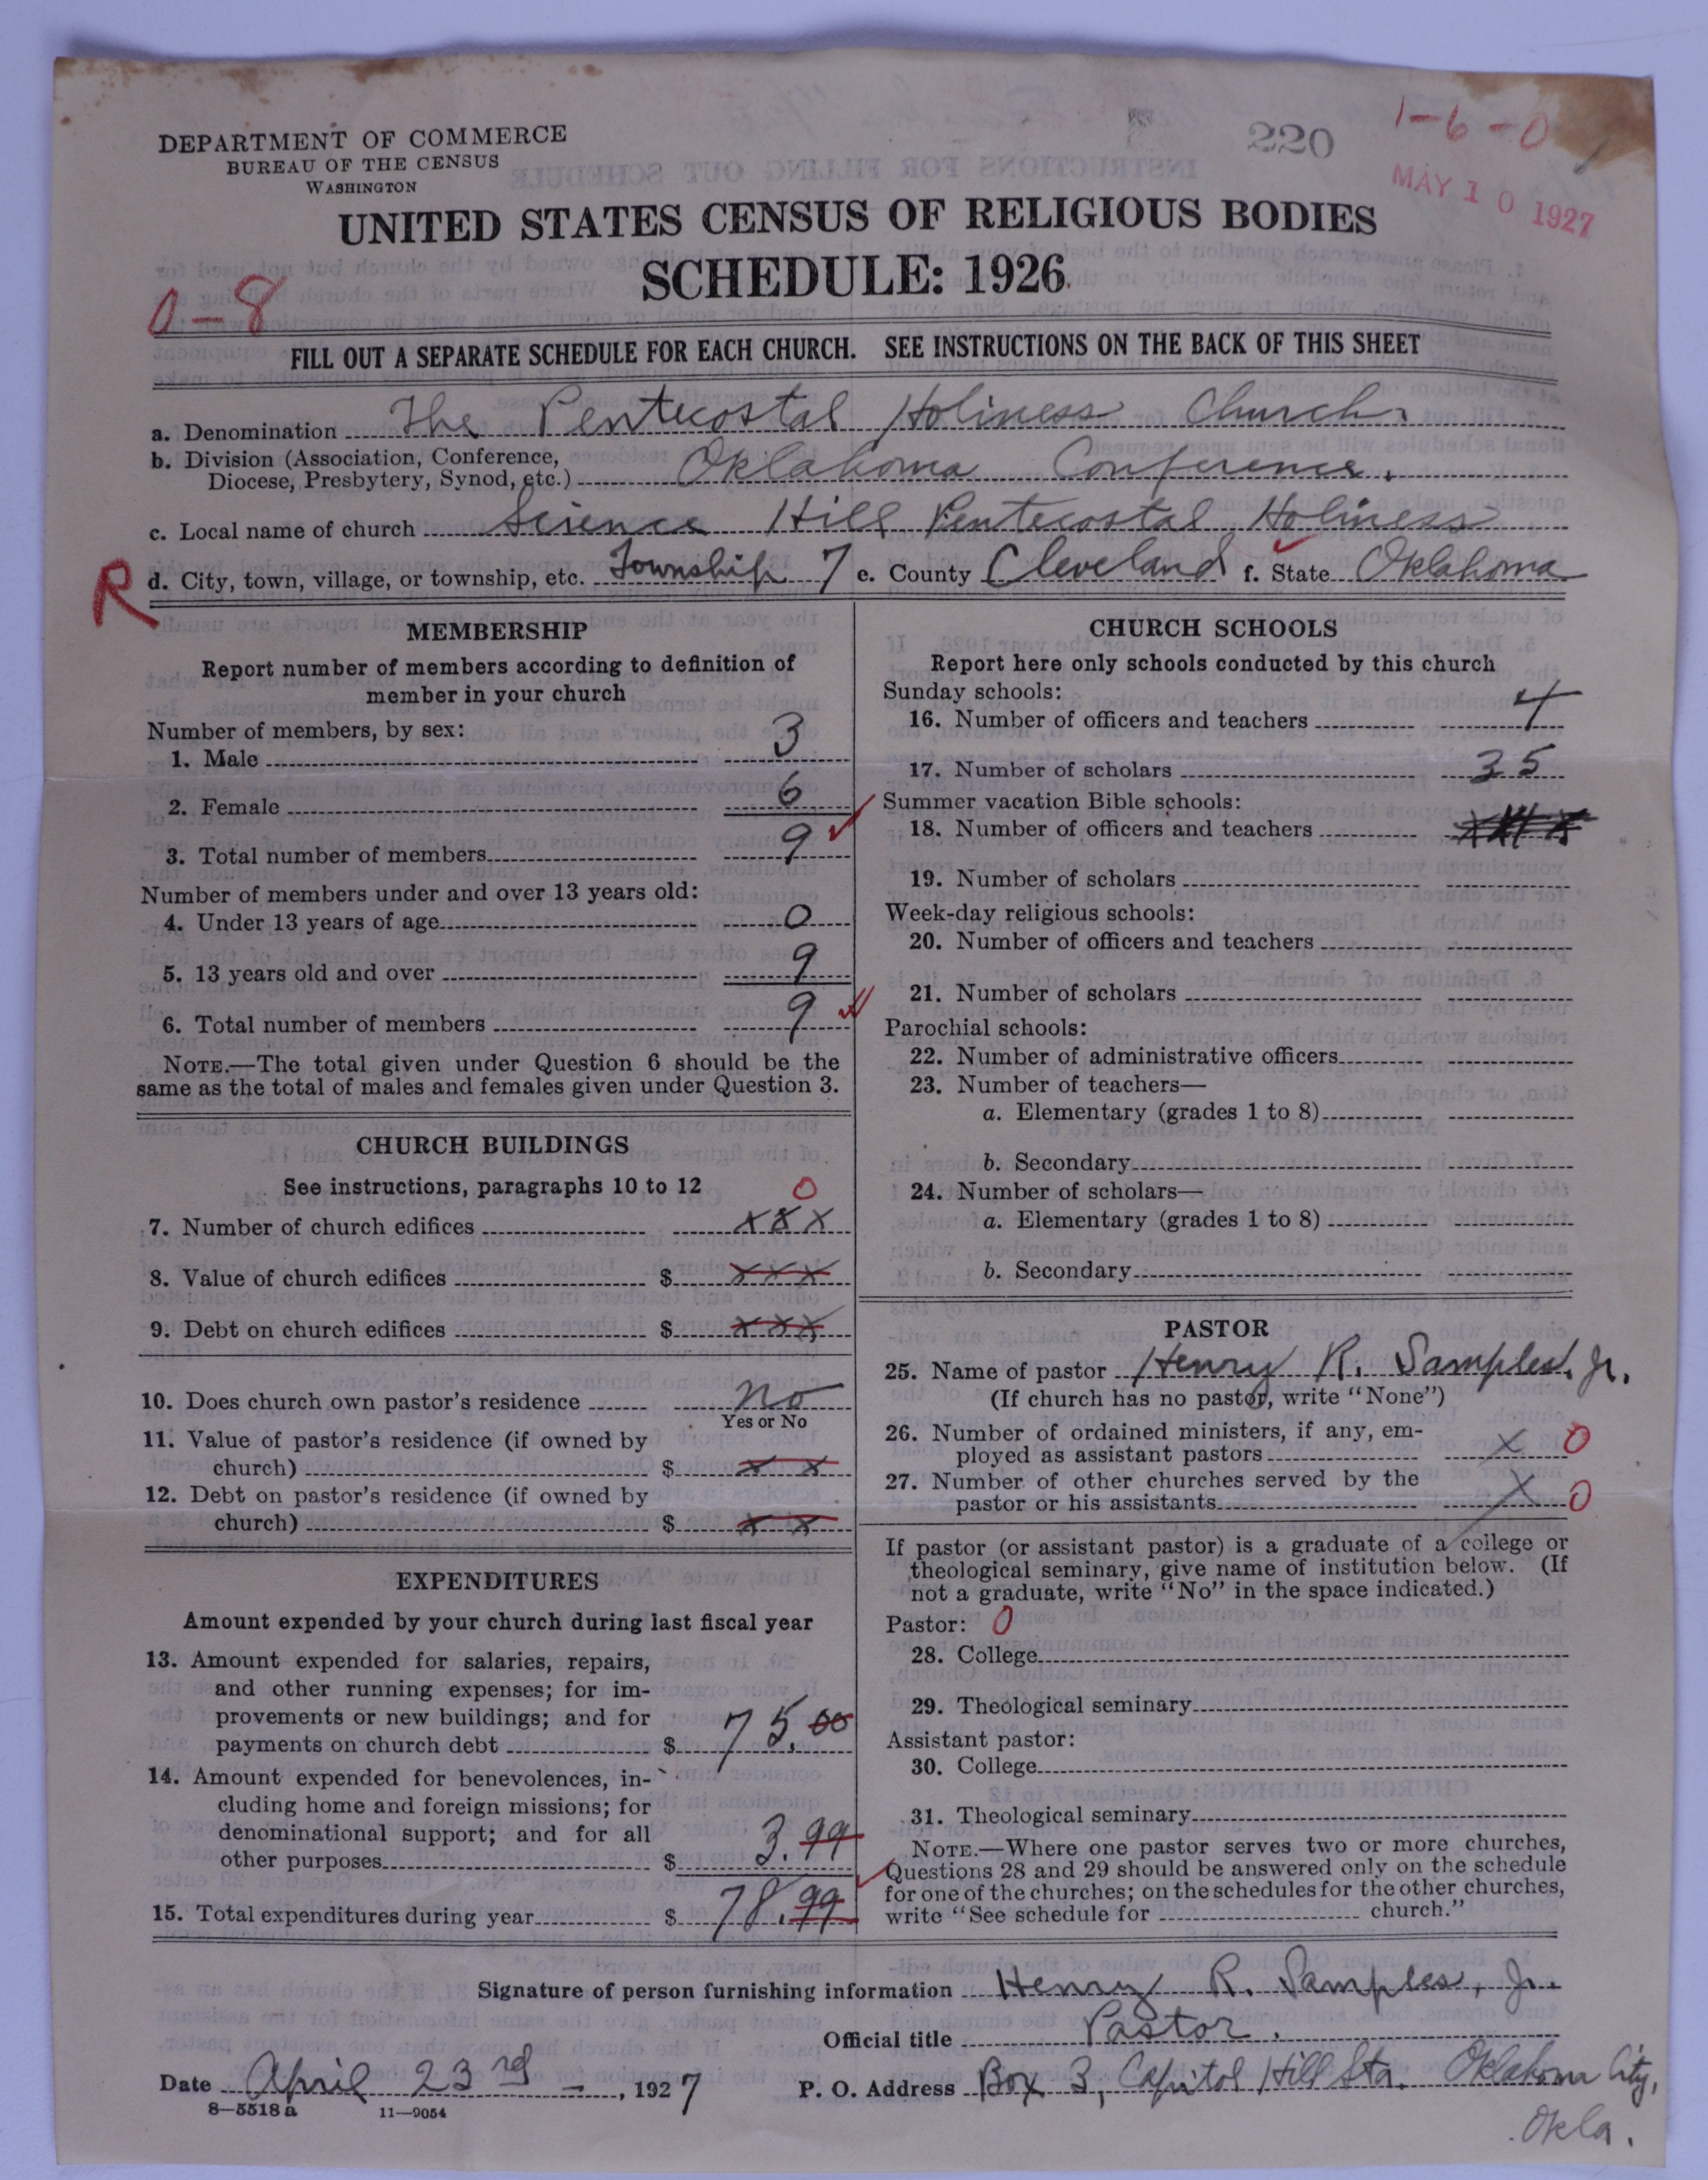 1-6-0
220
MAY 10 1927
DEPARTMENT OF COMMERCE
BUREAU OF THE CENSUS
WASHINGTON
UNITED STATES CENSUS OF RELIGIOUS BODIES
SCHEDULE: 1926
0-8
FILL OUT A SEPARATE SCHEDULE FOR EACH CHURCH. SEE INSTRUCTIONS ON THE BACK OF THIS SHEET
a. Denomination The Pentecostal Holiness Church.
b. Division (Association, Conference,
Diocese, Presbytery, Synod, etc.) Oklahoma Conference.
c. Local name of church Science Hill Pentecostal Holiness
R d. City, town, village, or township, etc. Township 7 e. County Cleveland f. State Oklahoma
MEMBERSHIP
Report number of members according to definition of
member in your church
Number of members, by sex:
1. Male 3
2. Female 6
3. Total number of members 9
Number of members under and over 13 years old:
4. Under 13 years of age 0
5. 13 years old and over 9
6. Total number of members 9
NOTE.—The total given under Question 6 should be the
same as the total of males and females given under Question 3.
CHURCH BUILDINGS
See instructions, paragraphs 10 to 12 0
7. Number of church edifices x x x
8. Value of church edifices $ x x x
9. Debt on church edifices $ x x x
10. Does church own pastor's residence no
Yes or No
11. Value of pastor's residence (if owned by
church) $ x x
12. Debt on pastor's residence (if owned by
church) $ x x
EXPENDITURES
Amount expended by your church during last fiscal year
13. Amount expended for salaries, repairs,
and other running expenses; for im-
provements or new buildings; and for
payments on church debt $ 75.00
14. Amount expended for benevolences, in-
cluding home and foreign missions; for
denominational support; and for all
other purposes $ 3.99
15. Total expenditures during year $ 78.99
CHURCH SCHOOLS
Report here only schools conducted by this church
Sunday schools:
16. Number of officers and teachers 4
17. Number of scholars 35
Summer vacation Bible schools:
18. Number of officers and teachers
19. Number of scholars
Week-day religious schools:
20. Number of officers and teachers
21. Number of scholars
Parochial schools:
22. Number of administrative officers
23. Number of teachers—
a. Elementary (grades 1 to 8)
b. Secondary
24. Number of scholars—
a. Elementary (grades 1 to 8)
b. Secondary
PASTOR
25. Name of pastor Henry R. Samples. Jr.
(If church has no pastor, write "None")
26. Number of ordained ministers, if any, em-
ployed as assistant pastors x 0
27. Number of other churches served by the
pastor or his assistants x 0
If pastor (or assistant pastor) is a graduate of a college or
theological seminary, give name of institution below. (If
not a graduate, write "No" in the space indicated.)
Pastor: 0
28. College
29. Theological seminary
Assistant pastor:
30. College
31. Theological seminary
NOTE.—Where one pastor serves two or more churches,
Questions 28 and 29 should be answered only on the schedule
for one of the churches; on the schedules for the other churches,
write "See schedule for church."
Signature of person furnishing information Henry R. Samples, Jr.
Official title Pastor.
Date April 23rd, 1927 P. O. Address Box 3, Capitol Hill Sta. Oklahoma City,
Okla.
8—5518a 11—9054